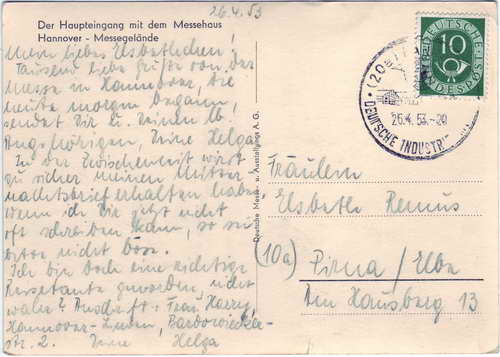 26.4.53
Der Haupteingang mit dem Messehaus
Hannover - Messegelände
Mein liebes Elsbethchen!
Tausend liebe Grüße von der
Messe in Hannover, die
heute morgen begann,
sendet Dir u. Deinen lb.
Angehörigen, Deine Helga
In der Zwischenzeit wirst
Du sicher meinen Mitter
nachtsbrief erhalten haben
wenn ich Dir jetzt nicht
oft schreiben kann, so sei
bitte nicht böse.
Ich bin doch eine richtige
geworden, nicht
wahr? Anschrift: Frau Harry,
Hannover-Linden, Bardowicker-
str. 2. Deine Helga
Deutsche Messe- u. Ausstellungs A. G.
DEUTSCHE BUNDESPOST
10
(20a)
26.4.53.-20
DEUTSCHE INDUSTRIE
Fräulein
Elsbeth Remus
(10a) Pirna / Elbe
Am Hausberg 13